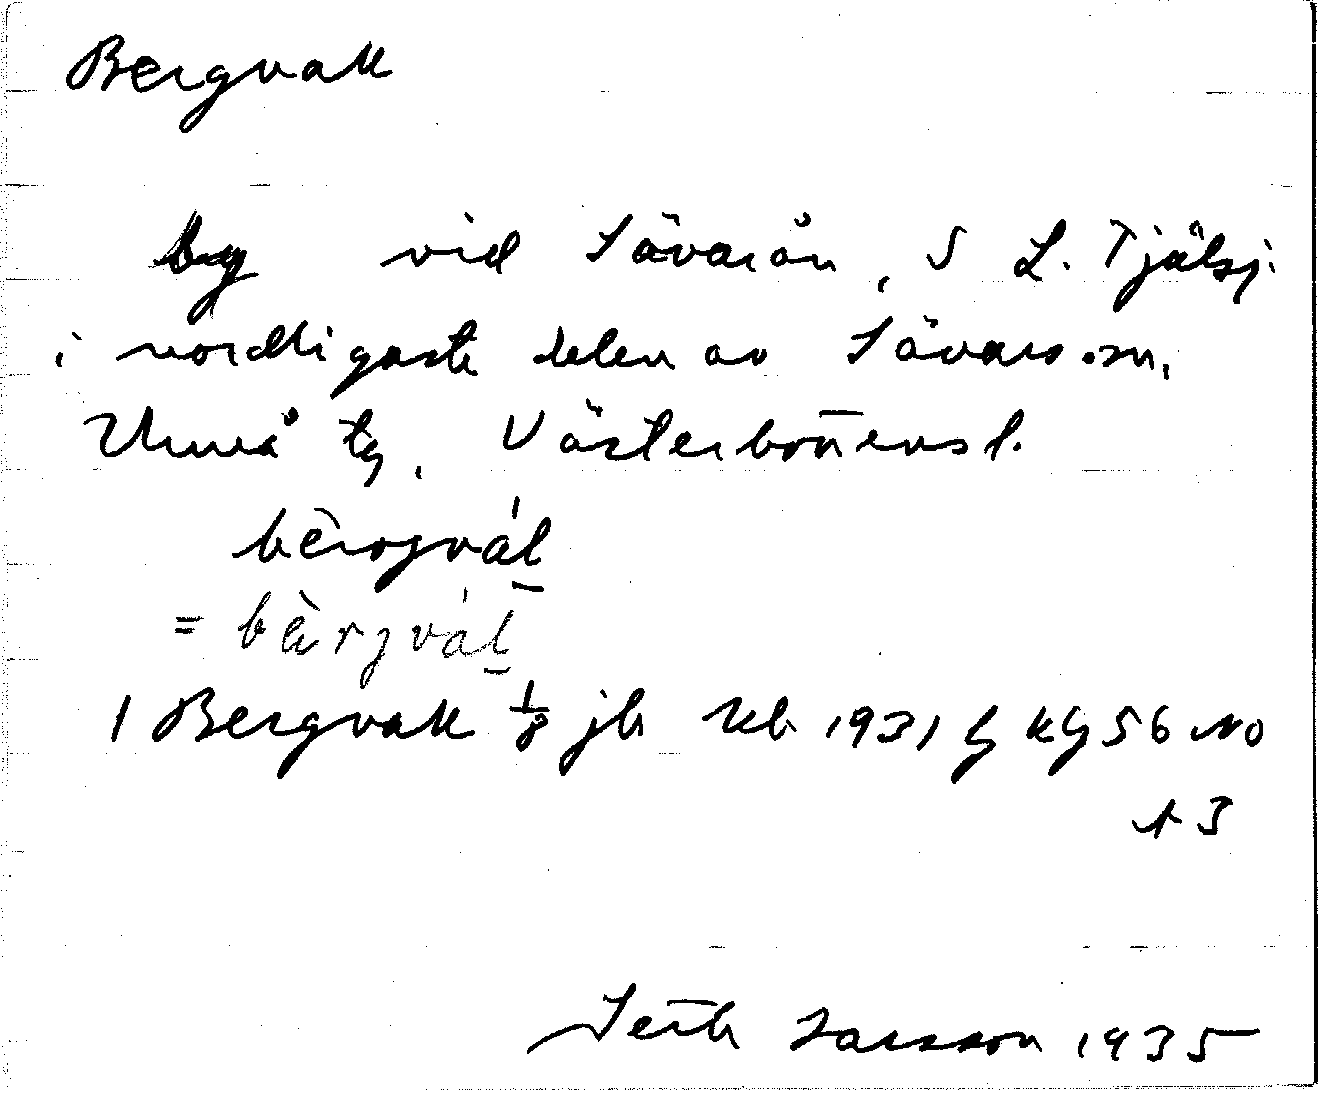 Bergvall
by vid Sävarån, S L. Tjälsj.
i nordligaste delen av Sävars sn,
Umeå tg, Västerbottens l.
bèrogvál
= bèrgvál
1 Bergvall 1/8 jb 1931 kg 56 NO
A 3
Seth Larsson 1935